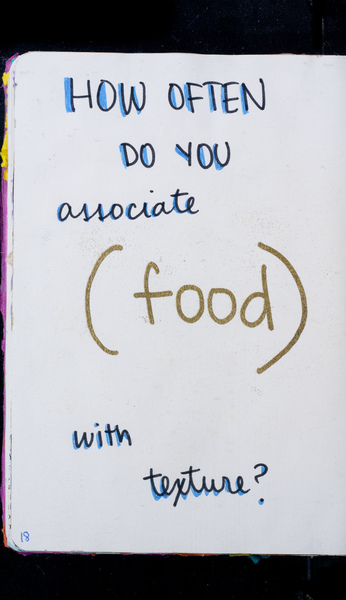 HOW OFTEN
DO YOU
associate
(food)
with
texture?
18